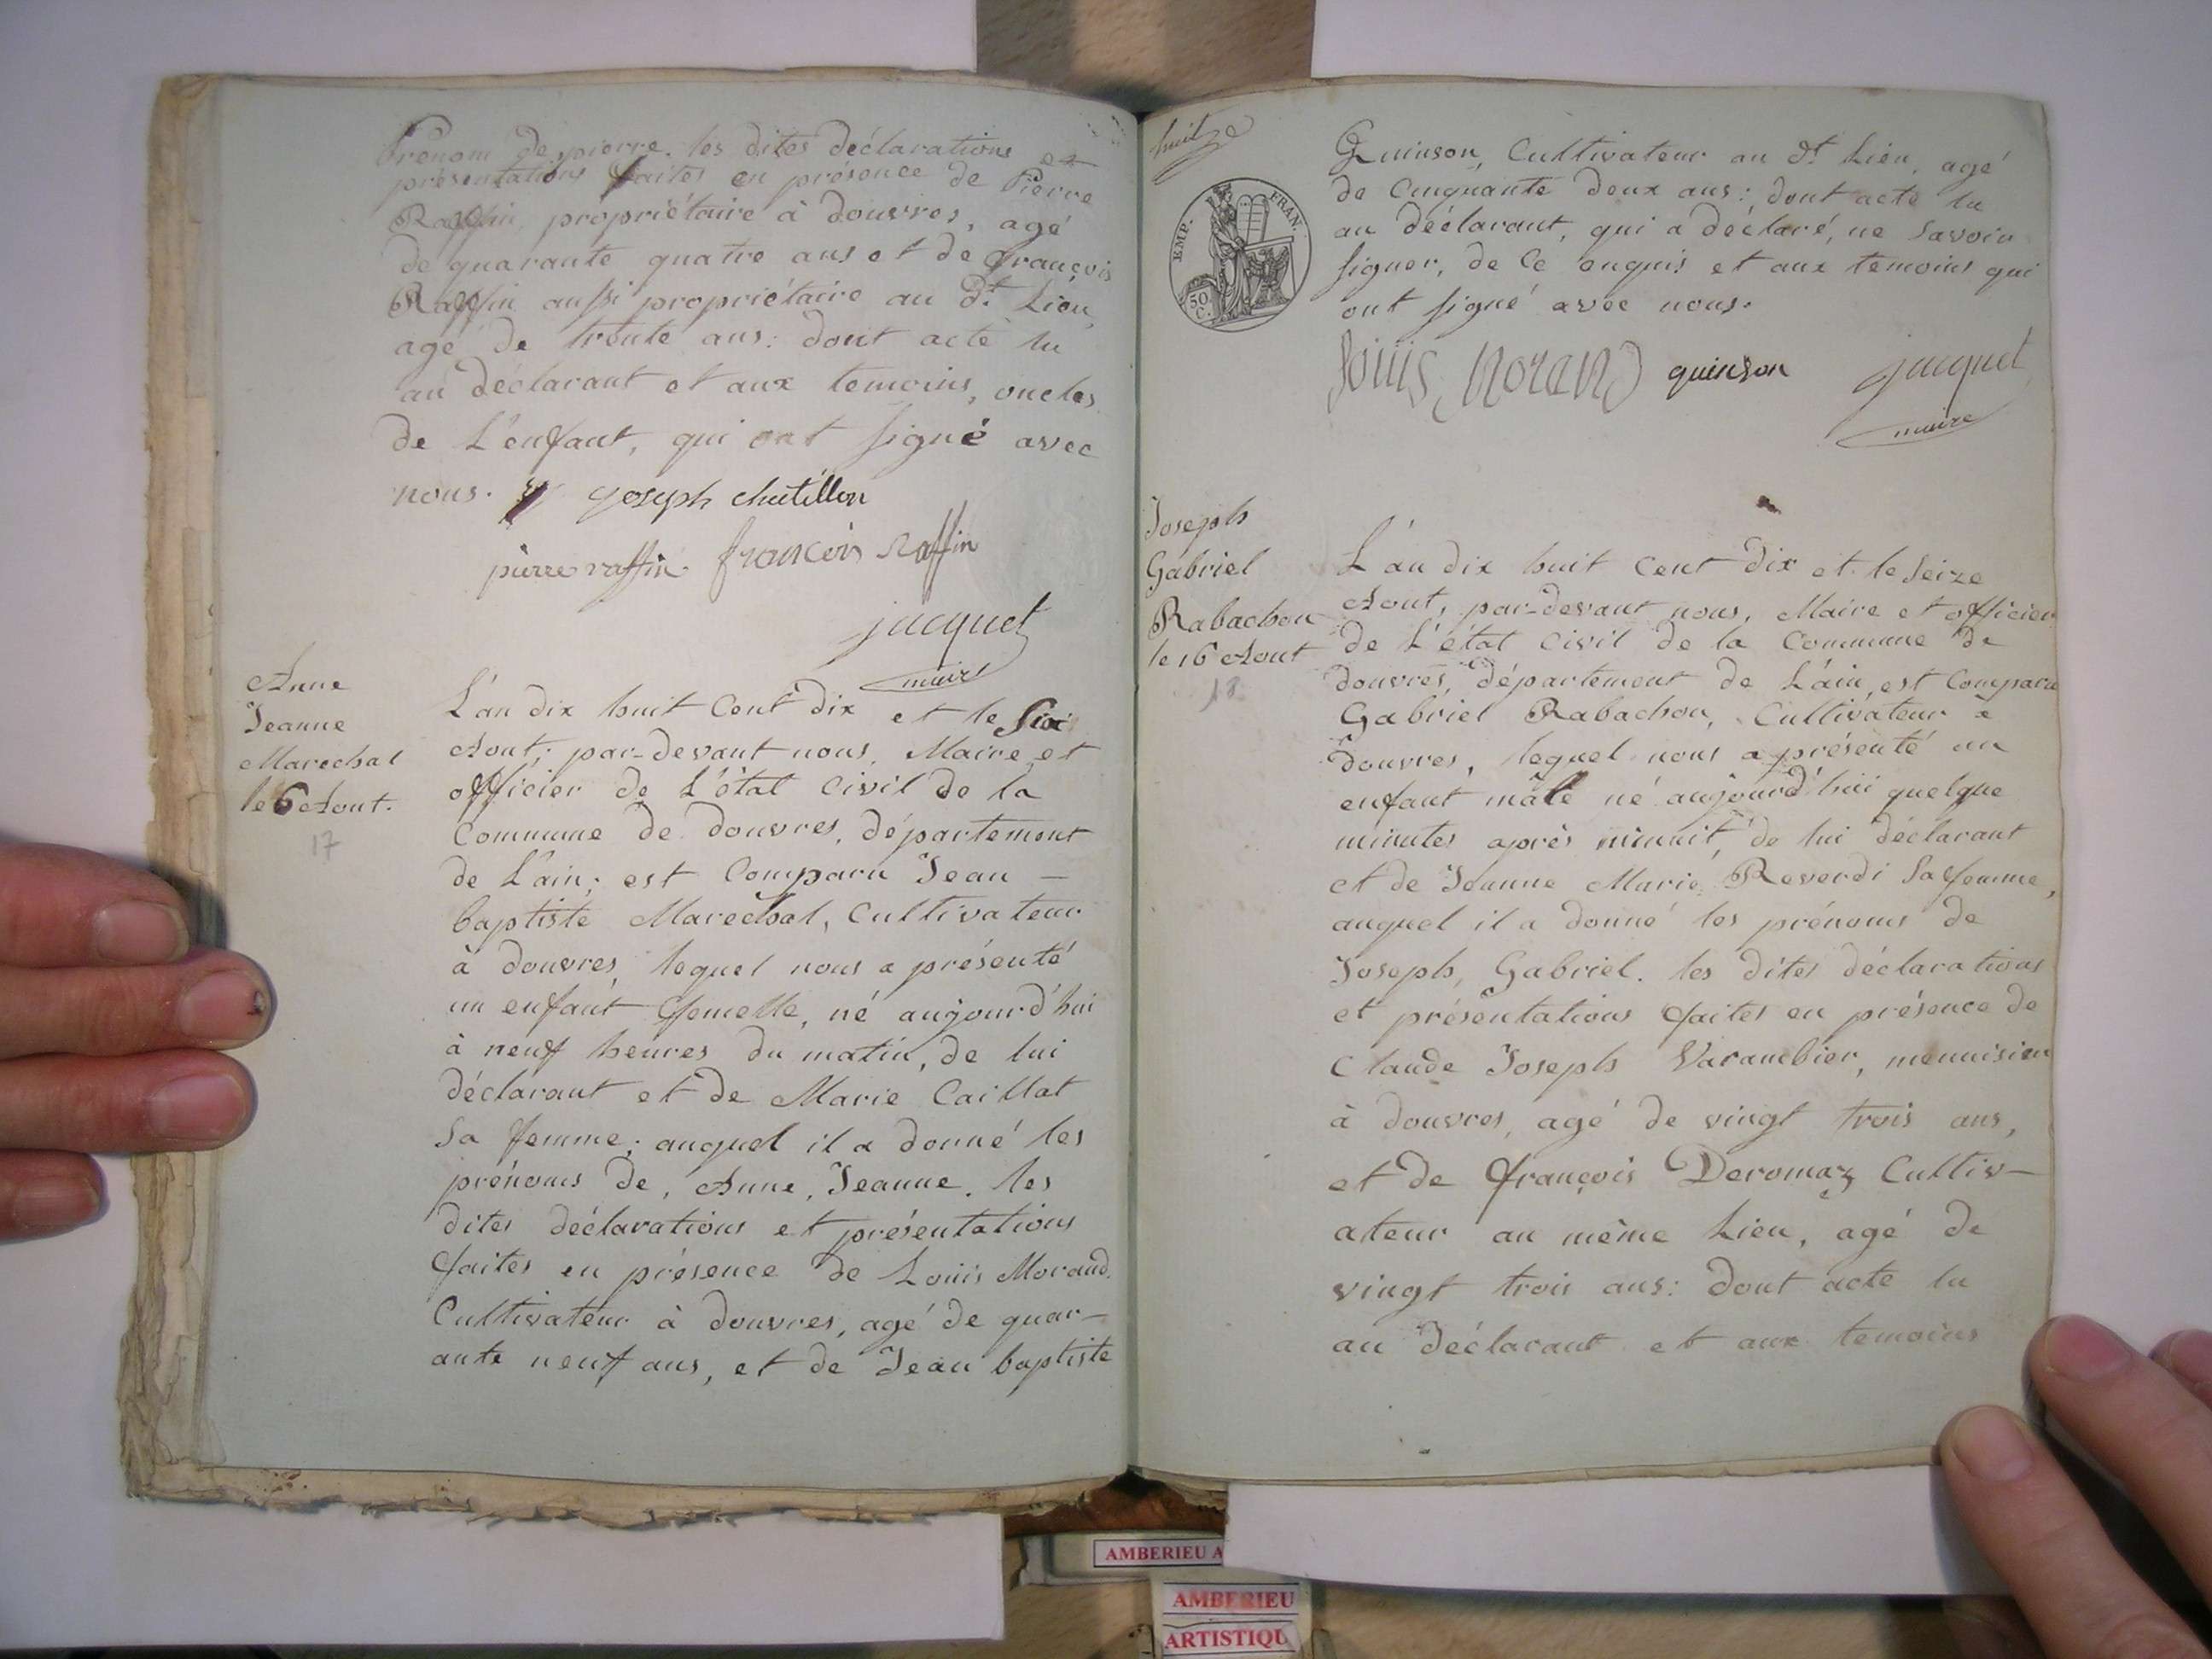 prénom de pierre. les dites déclarations et
présentations faites en présence de Pierre
Raffin, propriétaire à douvres, agé
de quarante quatre ans et de françois
Raffin aussi propriétaire au dt. Lieu,
agé de trente ans: dont acte lu
au déclarant et aux temoins, oncles
de L'enfant, qui ont signé avec
nous. joseph chatillon
pierre raffin. francois raffin
jacquet
maire
Anne
Jeanne
Marechal
le 6 Aout.
17
L'an dix huit Cent dix et le Six
Aout; par-devant nous, Maire et
officier de L'état Civil de la
Commune de douvres, département
de L'ain; est Comparu Jean -
baptiste Marechal, Cultivateur
à douvres, lequel nous a présenté
un enfant femelle, né aujourd'hui
à neuf heures du matin, de lui
déclarant et de Marie Caillat
Sa femme; auquel il a donné les
prénoms de, Anne, Jeanne. les
dites déclarations et présentations
faites en présence de Louis Morand.
Cultivateur à douvres, agé de quar-
ante neuf ans, et de Jean baptiste
huit
EMP. FRAN.
50
C.
Quinson, Cultivateur au dt. Lieu, agé
de Cinquante deux ans: dont acte lu
au déclarant, qui a déclaré, ne Savoir
signer, de Ce enquis et aux temoins qui
ont signé avec nous.
Louis Morand quinson jacquet
maire
Joseph
Gabriel
Rabachon
le 16 Aout
18
L'an dix huit Cent dix et le Seize
Aout, par-devant nous, Maire et officier
de L'état Civil de la Commune de
douvres, département de L'ain, est Comparu
Gabriel Rabachon, Cultivateur à
douvres, lequel nous a présenté un
enfant mâle né aujourd'hui quelque
minutes après minuit, de lui déclarant
et de Jeanne Marie Reverdi Sa femme,
auquel il a donné les prénoms de
Joseph, Gabriel. les dites déclarations
et présentations faites en présence de
Claude Joseph Varambier, menuisier
à douvres, agé de vingt trois ans,
et de françois Deromaz Cultiv-
ateur au même Lieu, agé de
vingt trois ans: dont acte lu
au déclarant et aux temoins
AMBERIEU A
AMBERIEU
ARTISTIQU